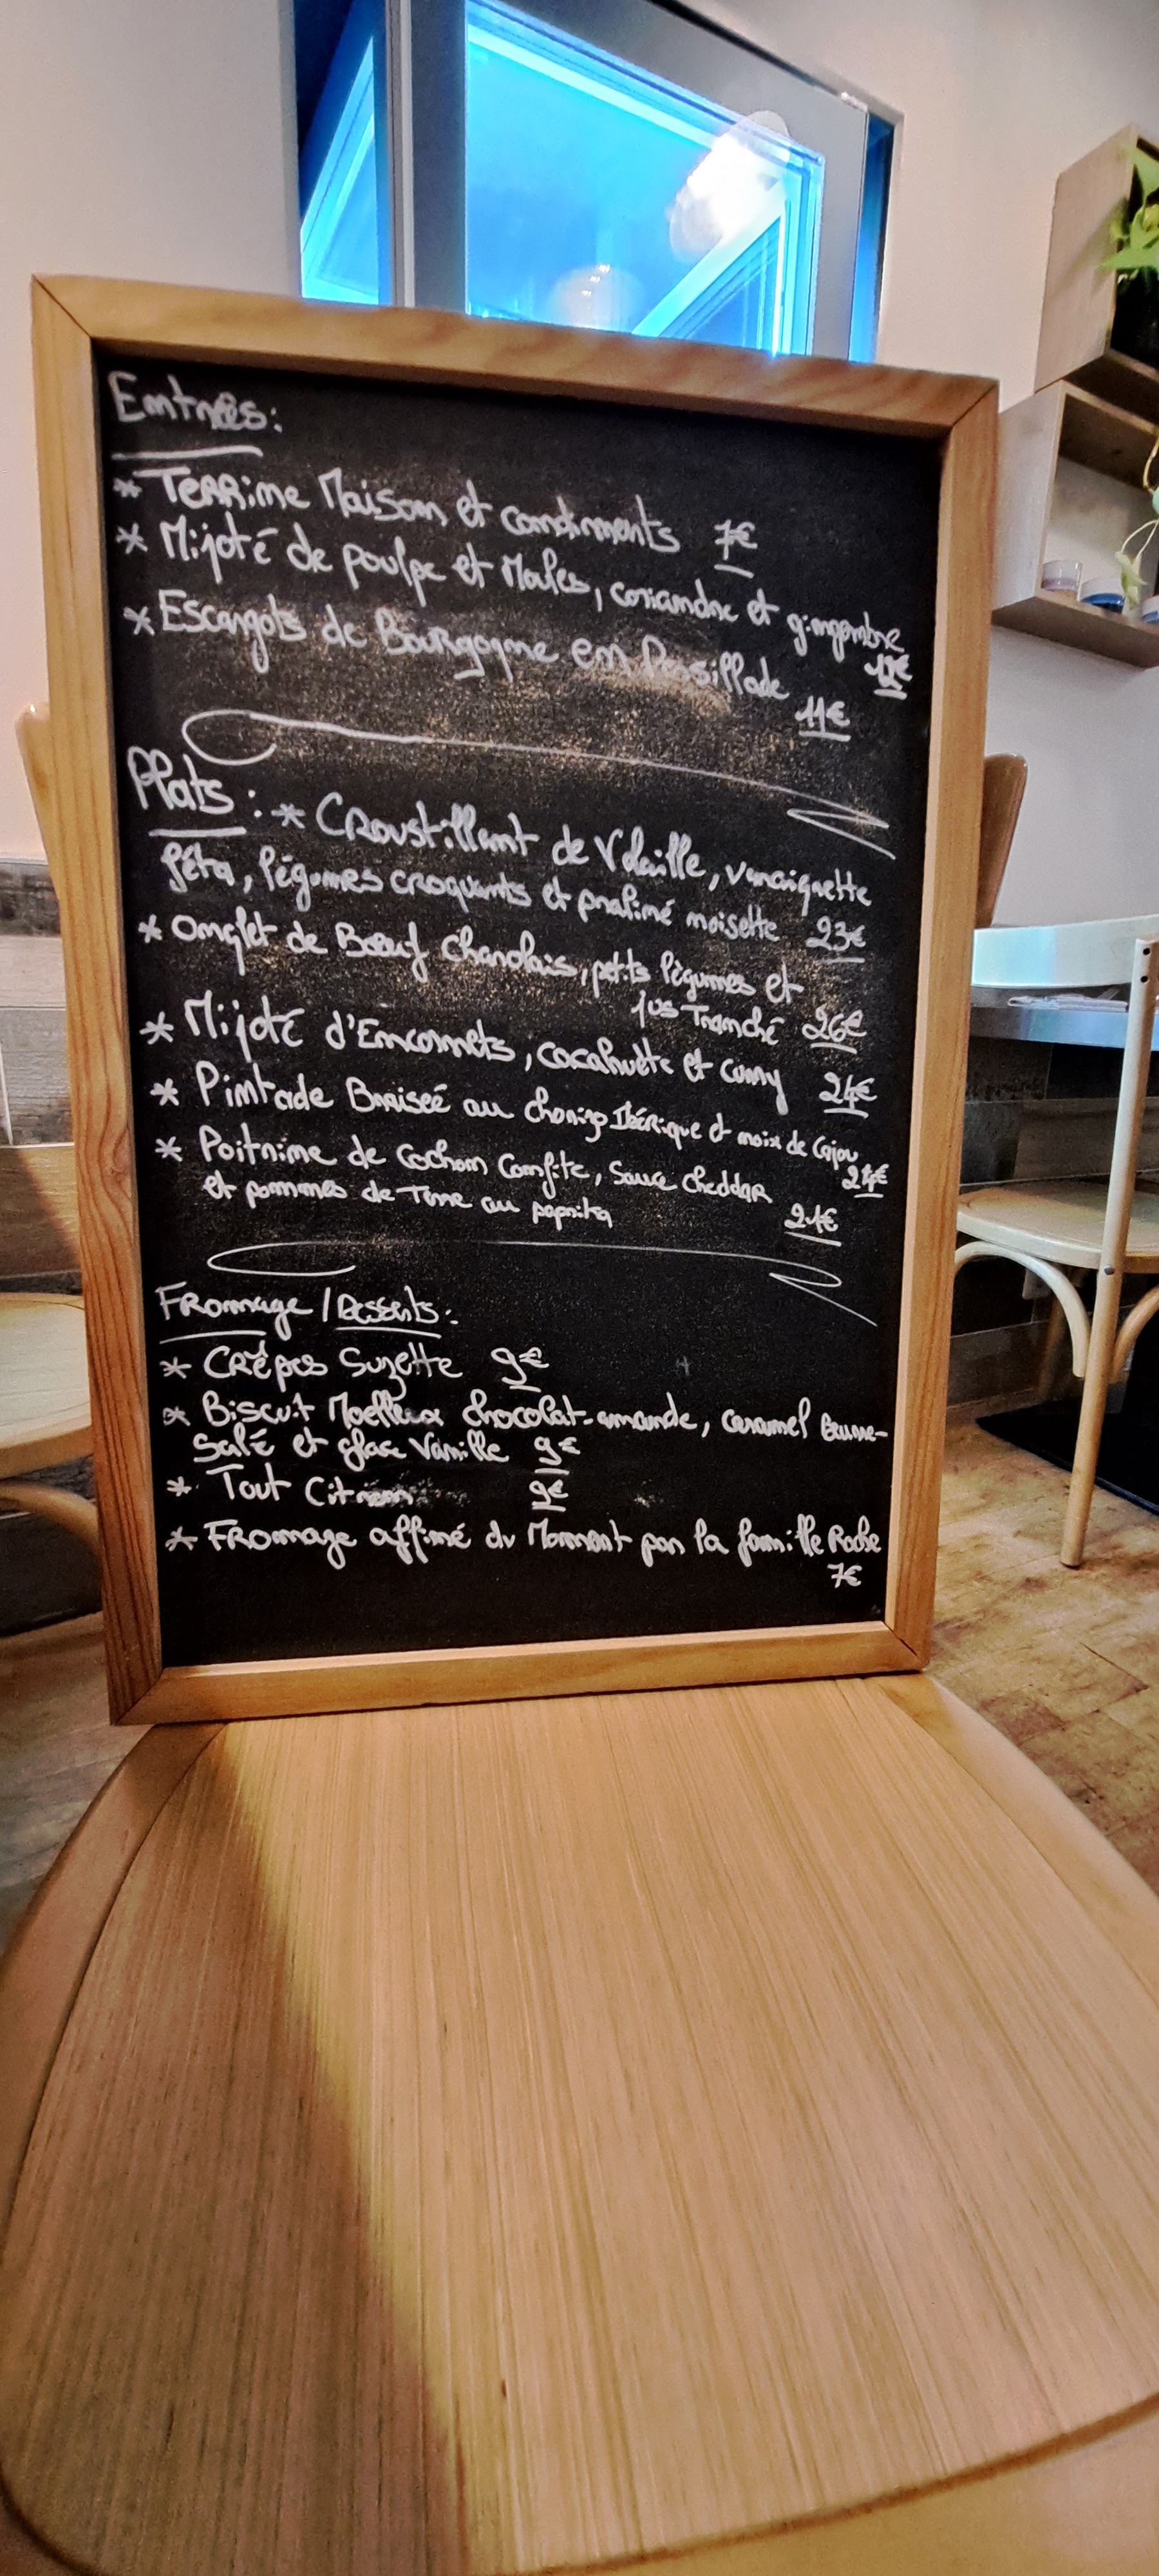 Entrées:
* Terrine Maison et condiments 7€
* Mijoté de poulpe et Moules, coriandre et gingembre
12€
* Escargots de Bourgogne en Persillade
11€
Plats: * Croustillant de Volaille, vinaigrette
féta, légumes croquants et praliné noisette 23€
* Onglet de Bœuf Charolais, petits légumes et
jus Tranché 26€
* Mijoté d'Encornets, cacahuète et curry 24€
* Pintade Braisée au chorizo Ibérique et noix de Cajou
24€
* Poitrine de Cochon Confite, Sauce Cheddar
et pommes de Terre au paprika 21€
Fromage / Desserts:
* Crêpes Suzette 9€
* Biscuit Moelleux chocolat-amande, caramel Beurre-
Salé et glace Vanille 9€
* Tout Citron 9€
* Fromage affiné du Moment par la famille
7€